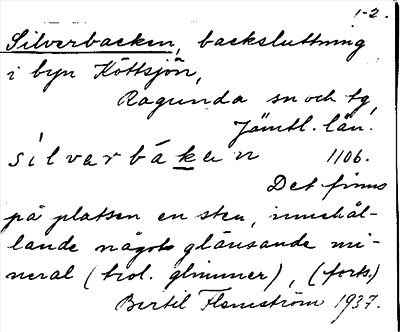 1-2.
Silverbacken, backsluttning
i byn Köttsjön,
Ragunda sn och tg,
Jämtl. län.
sílvarbákan 1106.
Det finns
på platsen en sten, innehål-
lande något glänsande mi-
neral (trol. glimmer), (forts.)
Bertil Flemström 1937.